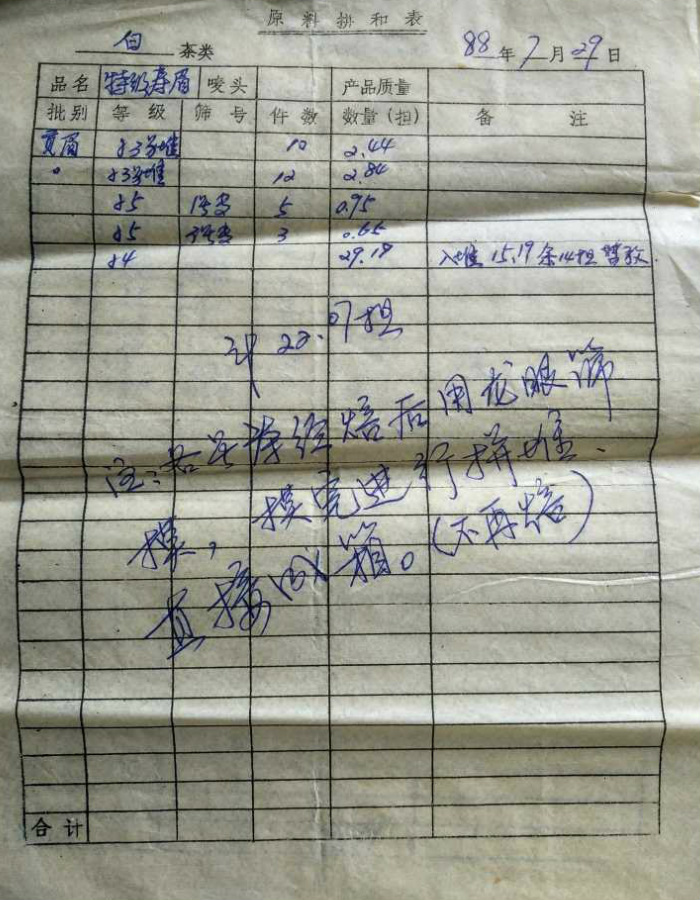 原料拼和表
白 茶类 88年7月29日
品名 特级寿眉 唛头 产品质量
批别 等级 筛号 件数 数量(担) 备注
贡眉 83 堆 10 2.44
〃 83 堆 12 2.84
85 1号 5 0.95
85 3 0.66
84 29.19 入堆 15.19 余14担 暂放
计 22.07担
注: 经焙后用龙眼筛
撩, 撩完进行拼堆.
直接 箱。(不再焙)
合计